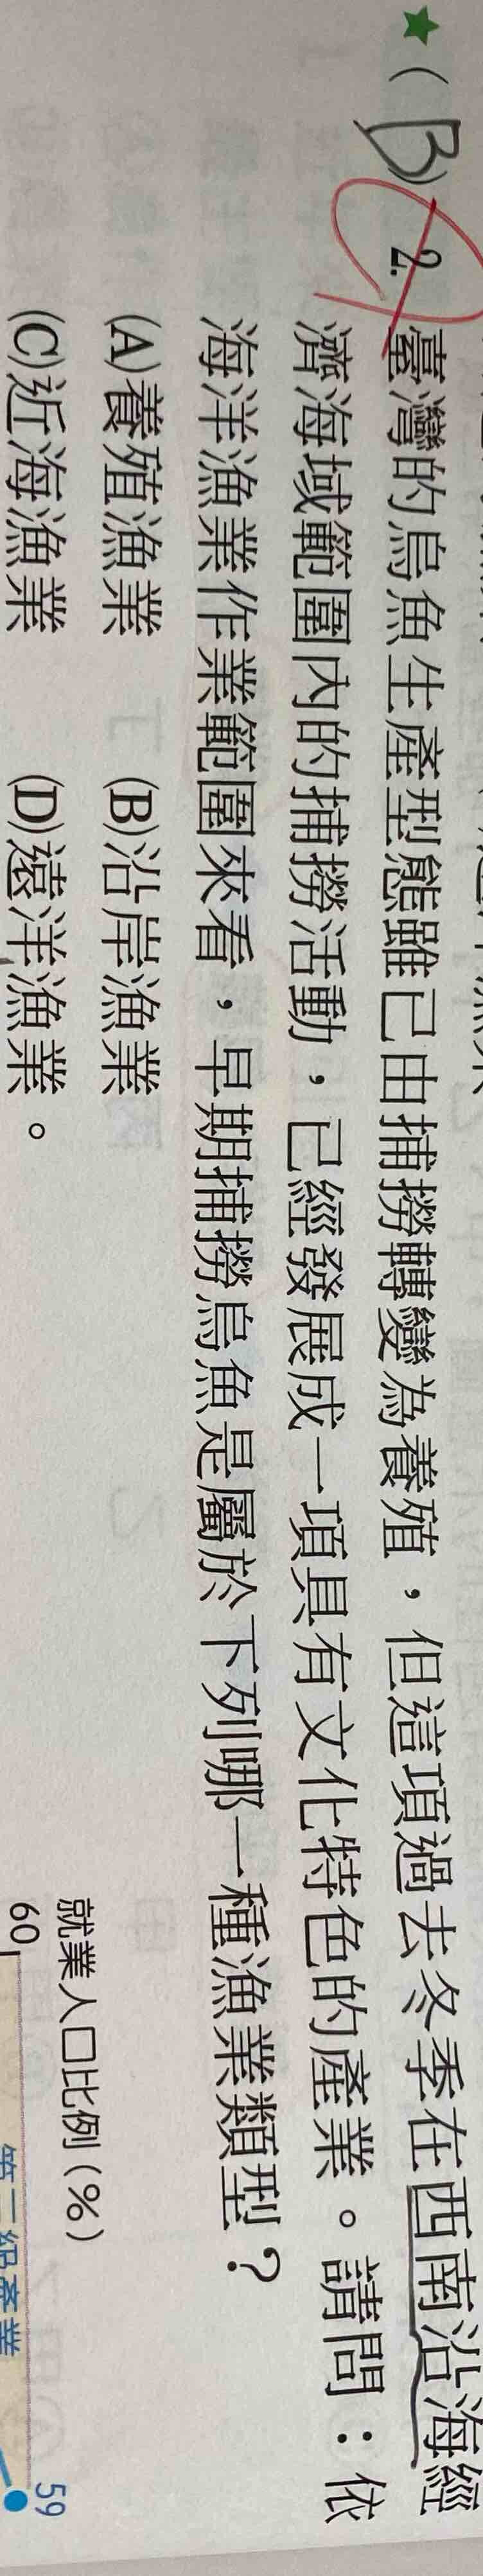 ★(B) 2. 臺灣的烏魚生產型態雖已由捕撈轉變為養殖，但這項過去冬季在西南沿海經
濟海域範圍內的捕撈活動，已經發展成一項具有文化特色的產業。請問：依
海洋漁業作業範圍來看，早期捕撈烏魚是屬於下列哪一種漁業類型？
(A)養殖漁業 (B)沿岸漁業
(C)近海漁業 (D)遠洋漁業。
就業人口比例(%)
60
59